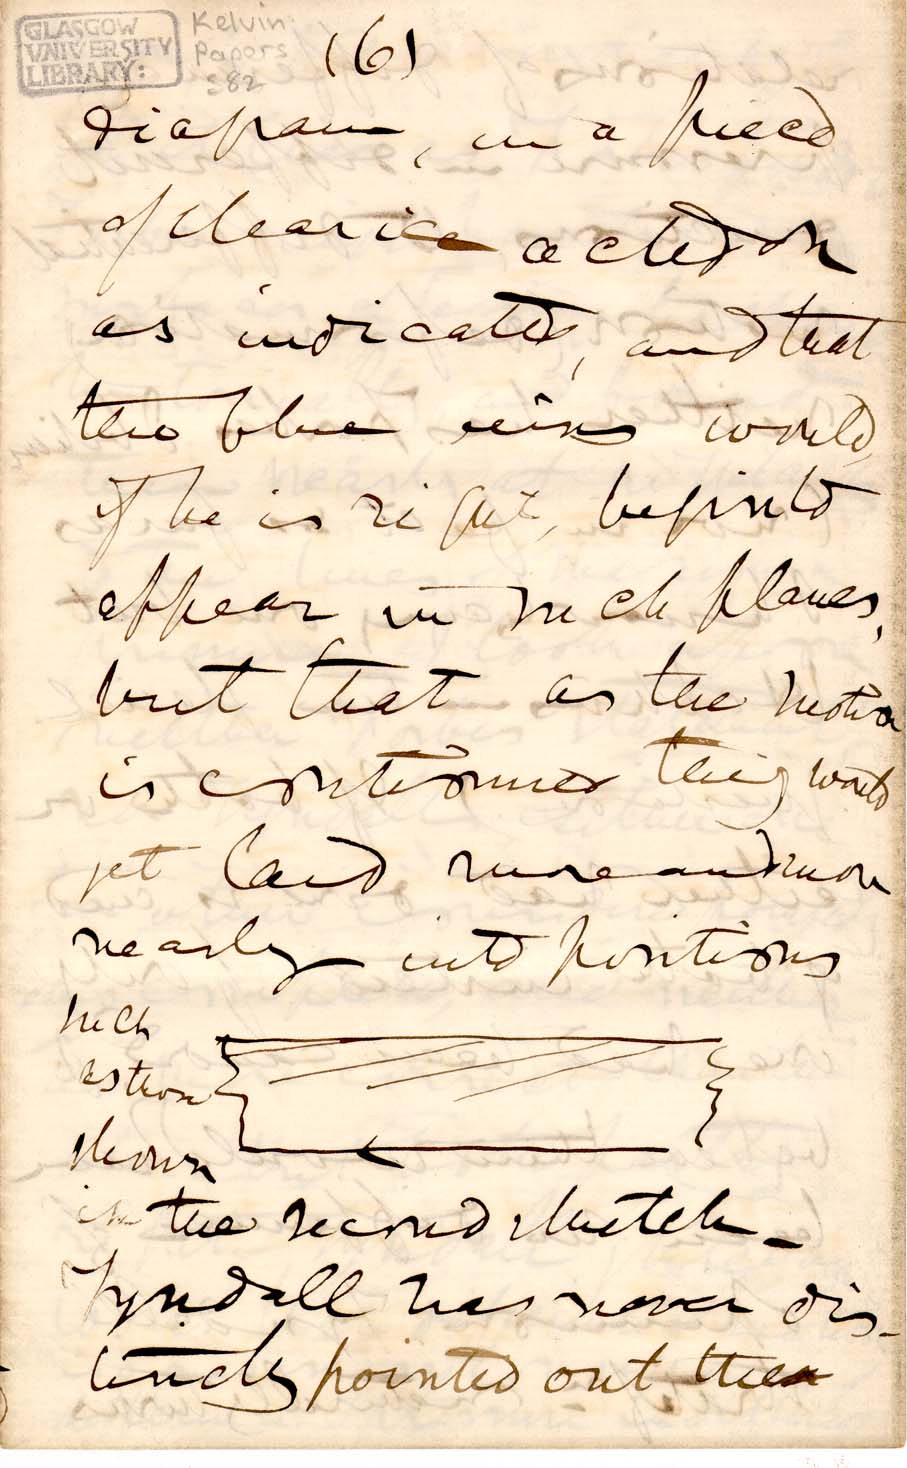 GLASGOW
UNIVERSITY
LIBRARY:
Kelvin
Papers
S82
(6)
diagram, in a piece
of clear ice acted on
as indicated, and that
the blue veins would,
if he is right, begin to
appear in such planes,
but that as the motion
is continued they would
get laid more and more
nearly into positions
such
as those
shown
in the second sketch -
Tyndall has never dis-
tinctly pointed out